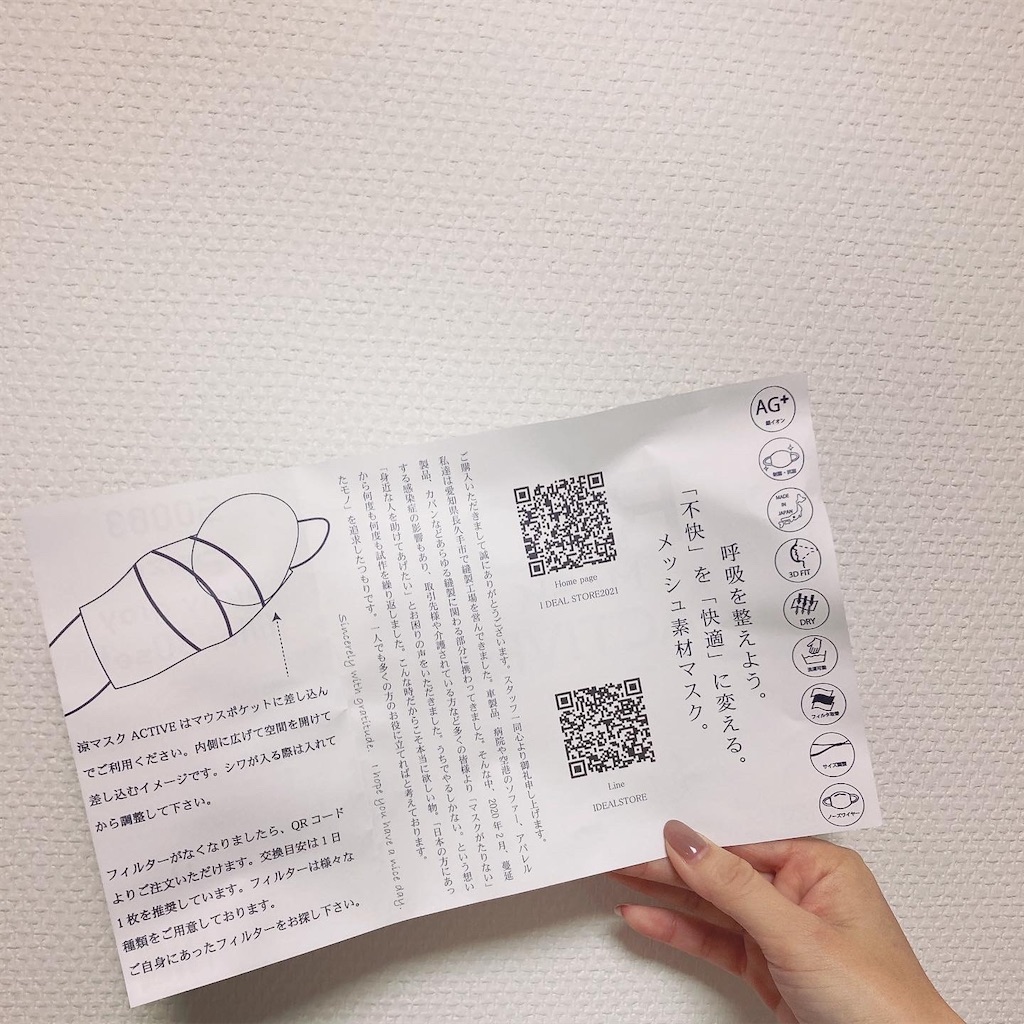 呼吸を整えよう。
「不快」を「快適」に変える。
メッシュ素材マスク。
AG+
銀イオン
制菌・抗菌
MADE
IN
JAPAN
3D FIT
DRY
洗濯可能
フィルタ取替
サイズ調整
ノーズワイヤー
Home page
I DEAL STORE2021
Line
IDEALSTORE
ご購入いただきまして誠にありがとうございます。スタッフ一同心より御礼申し上げます。
私達は愛知県長久手市で縫製工場を営んできました。車製品、病院や空港のソファー、アパレル
製品、カバンなどあらゆる縫製に関わる部分に携わってきました。そんな中、2020年2月、蔓延
する感染症の影響もあり、取引先様や介護されている方など多くの皆様より「マスクがたりない」
「身近な人を助けてあげたい」とお困りの声をいただきました。うちでやるしかない。という想い
から何度も何度も試作を繰り返しました。こんな時だからこそ本当に欲しい物。「日本の方にあっ
たモノ」を追求したつもりです。一人でも多くの方のお役に立てればと考えております。
Sincerely with gratitude. I hope you have a nice day.
涼マスク ACTIVE はマウスポケットに差し込ん
でご利用ください。内側に広げて空間を開けて
差し込むイメージです。シワが入る際は入れて
から調整して下さい。
フィルターがなくなりましたら、QRコード
よりご注文いただけます。交換目安は1日
1枚を推奨しています。フィルターは様々な
種類をご用意しております。
ご自身にあったフィルターをお探し下さい。